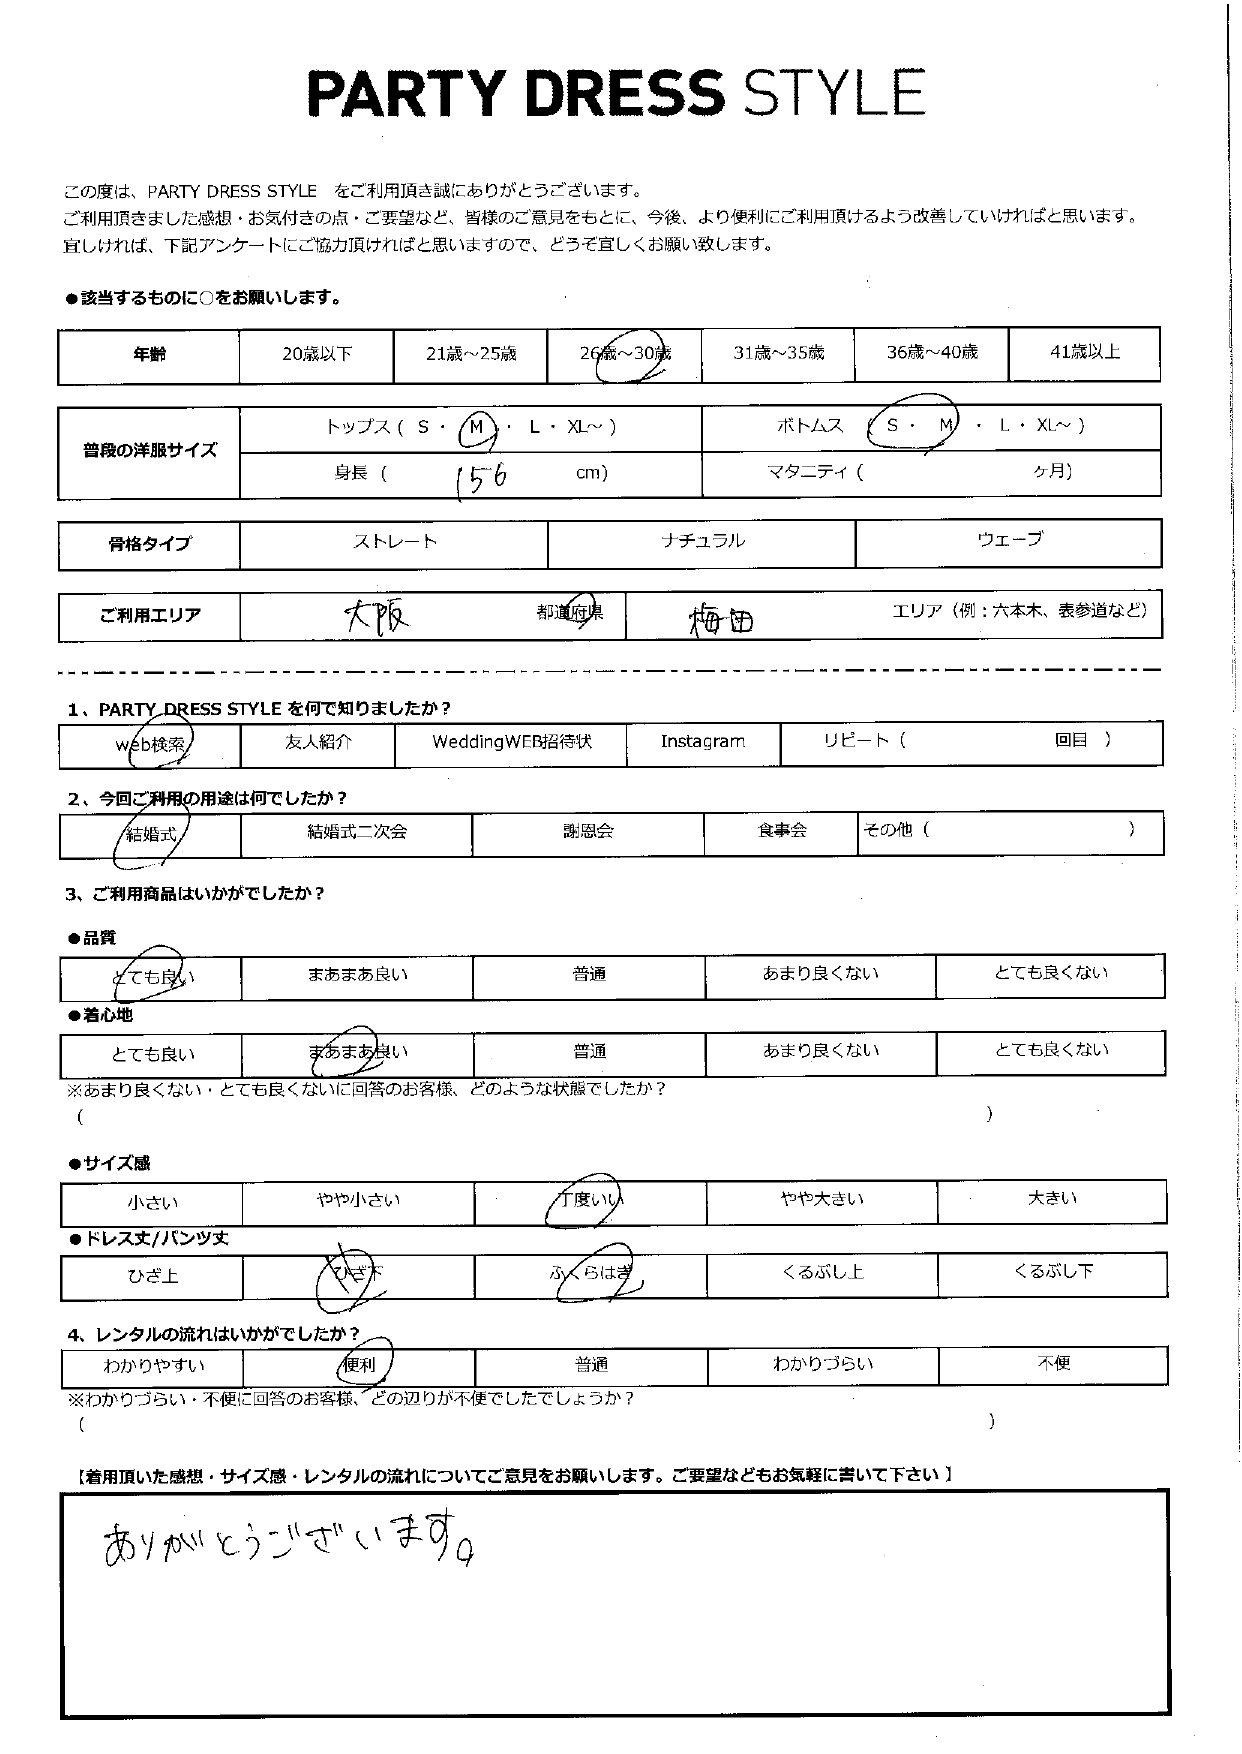 PARTY DRESS STYLE
この度は、PARTY DRESS STYLE をご利用頂き誠にありがとうございます。
ご利用頂きました感想・お気付きの点・ご要望など、皆様のご意見をもとに、今後、より便利にご利用頂けるよう改善していければと思います。
宜しければ、下記アンケートにご協力頂ければと思いますので、どうぞ宜しくお願い致します。
●該当するものに○をお願いします。
年齢 20歳以下 21歳～25歳 26歳～30歳 31歳～35歳 36歳～40歳 41歳以上
普段の洋服サイズ
トップス ( S ・ M ・ L ・ XL～ ) ボトムス ( S ・ M ・ L ・ XL～ )
身長 ( 156 cm) マタニティ ( ヶ月)
骨格タイプ ストレート ナチュラル ウェーブ
ご利用エリア 大阪 都道府県 梅田 エリア（例：六本木、表参道など）
1、PARTY DRESS STYLE を何で知りましたか？
web検索 友人紹介 WeddingWEB招待状 Instagram リピート ( 回目 )
2、今回ご利用の用途は何でしたか？
結婚式 結婚式二次会 謝恩会 食事会 その他 ( )
3、ご利用商品はいかがでしたか？
●品質
とても良い まあまあ良い 普通 あまり良くない とても良くない
●着心地
とても良い まあまあ良い 普通 あまり良くない とても良くない
※あまり良くない・とても良くないに回答のお客様、どのような状態でしたか？
( )
●サイズ感
小さい やや小さい 丁度いい やや大きい 大きい
●ドレス丈/パンツ丈
ひざ上 ひざ下 ふくらはぎ くるぶし上 くるぶし下
4、レンタルの流れはいかがでしたか？
わかりやすい 便利 普通 わかりづらい 不便
※わかりづらい・不便に回答のお客様、どの辺りが不便でしたでしょうか？
( )
【着用頂いた感想・サイズ感・レンタルの流れについてご意見をお願いします。ご要望などもお気軽に書いて下さい】
ありがとうございます。